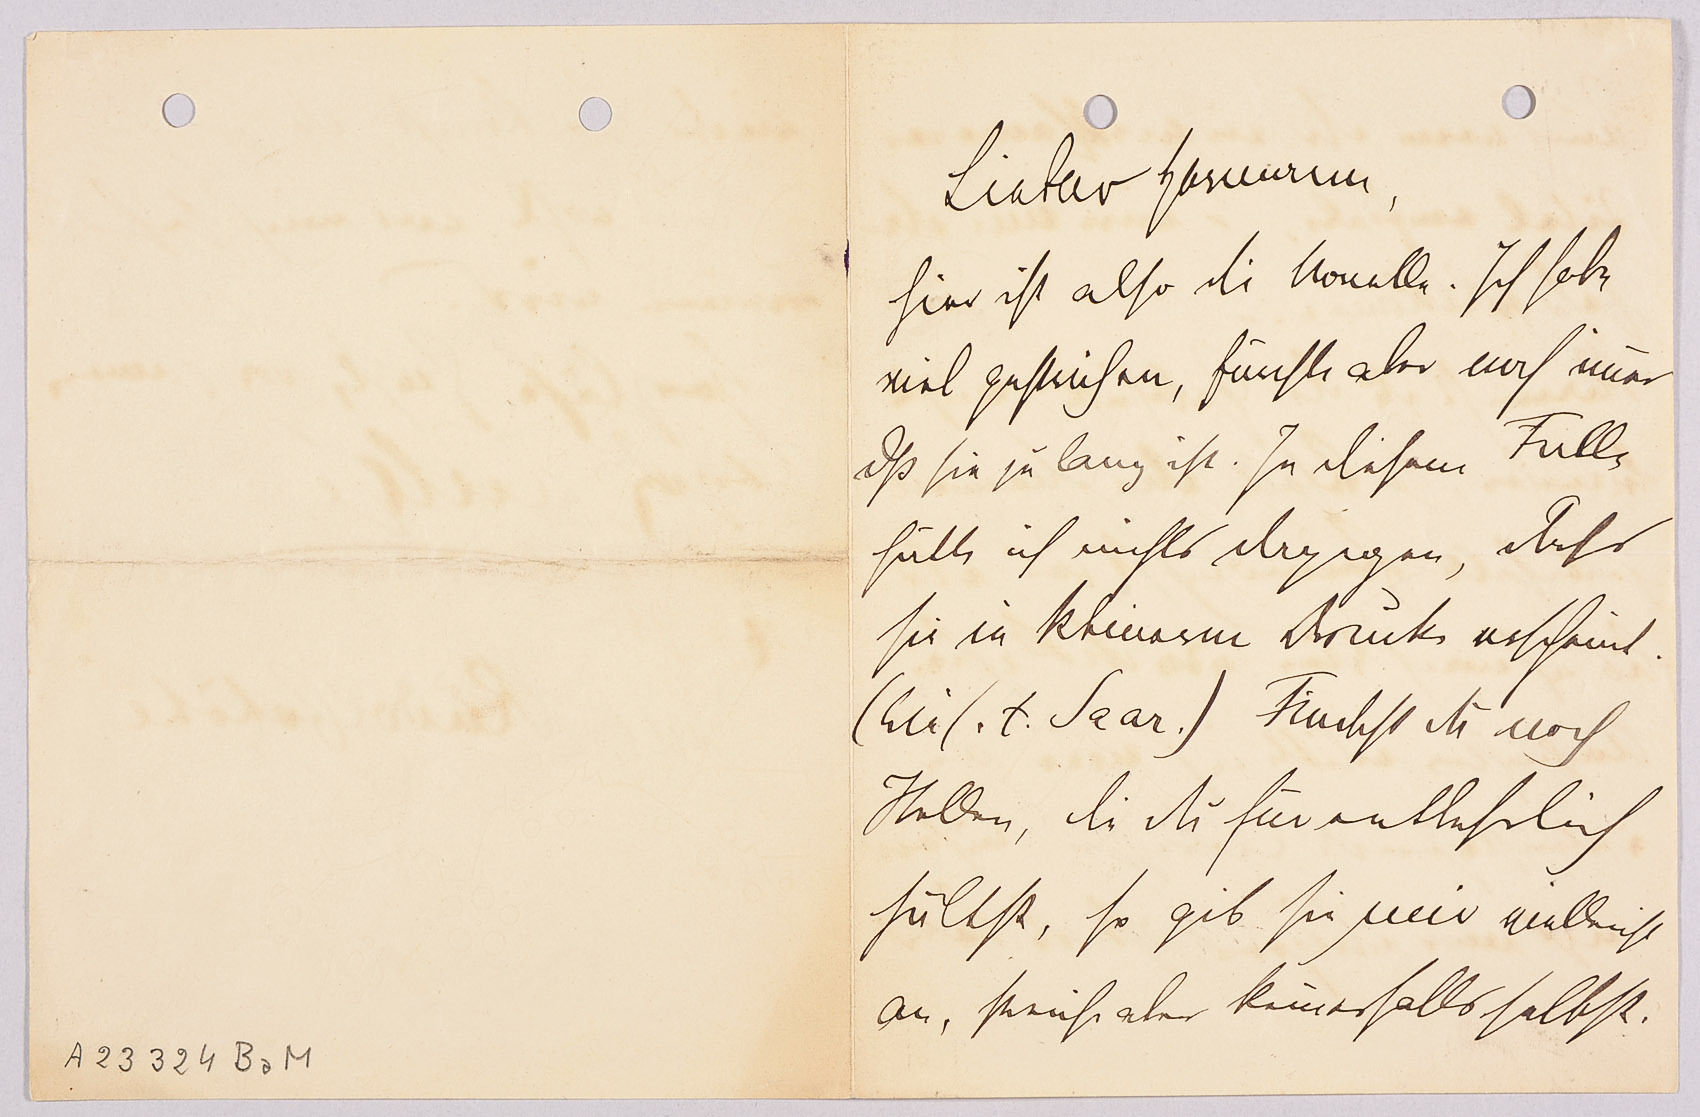 Lieber Hermann,
hier ist also die Novelle. Ich habe
viel gestrichen, fürchte aber noch im̄er
dß sie zu lang ist. In diesem Falle
hätte ich nichts dagegen, dass
sie in kleinerem Drucke erscheint.
(wie f. t. Saar.) Findest du noch
Stellen, die du für entbehrlich
hältst, so gib sie mir vielleicht
an, streiche aber keinesfalls selbst.
A 23324 BaM